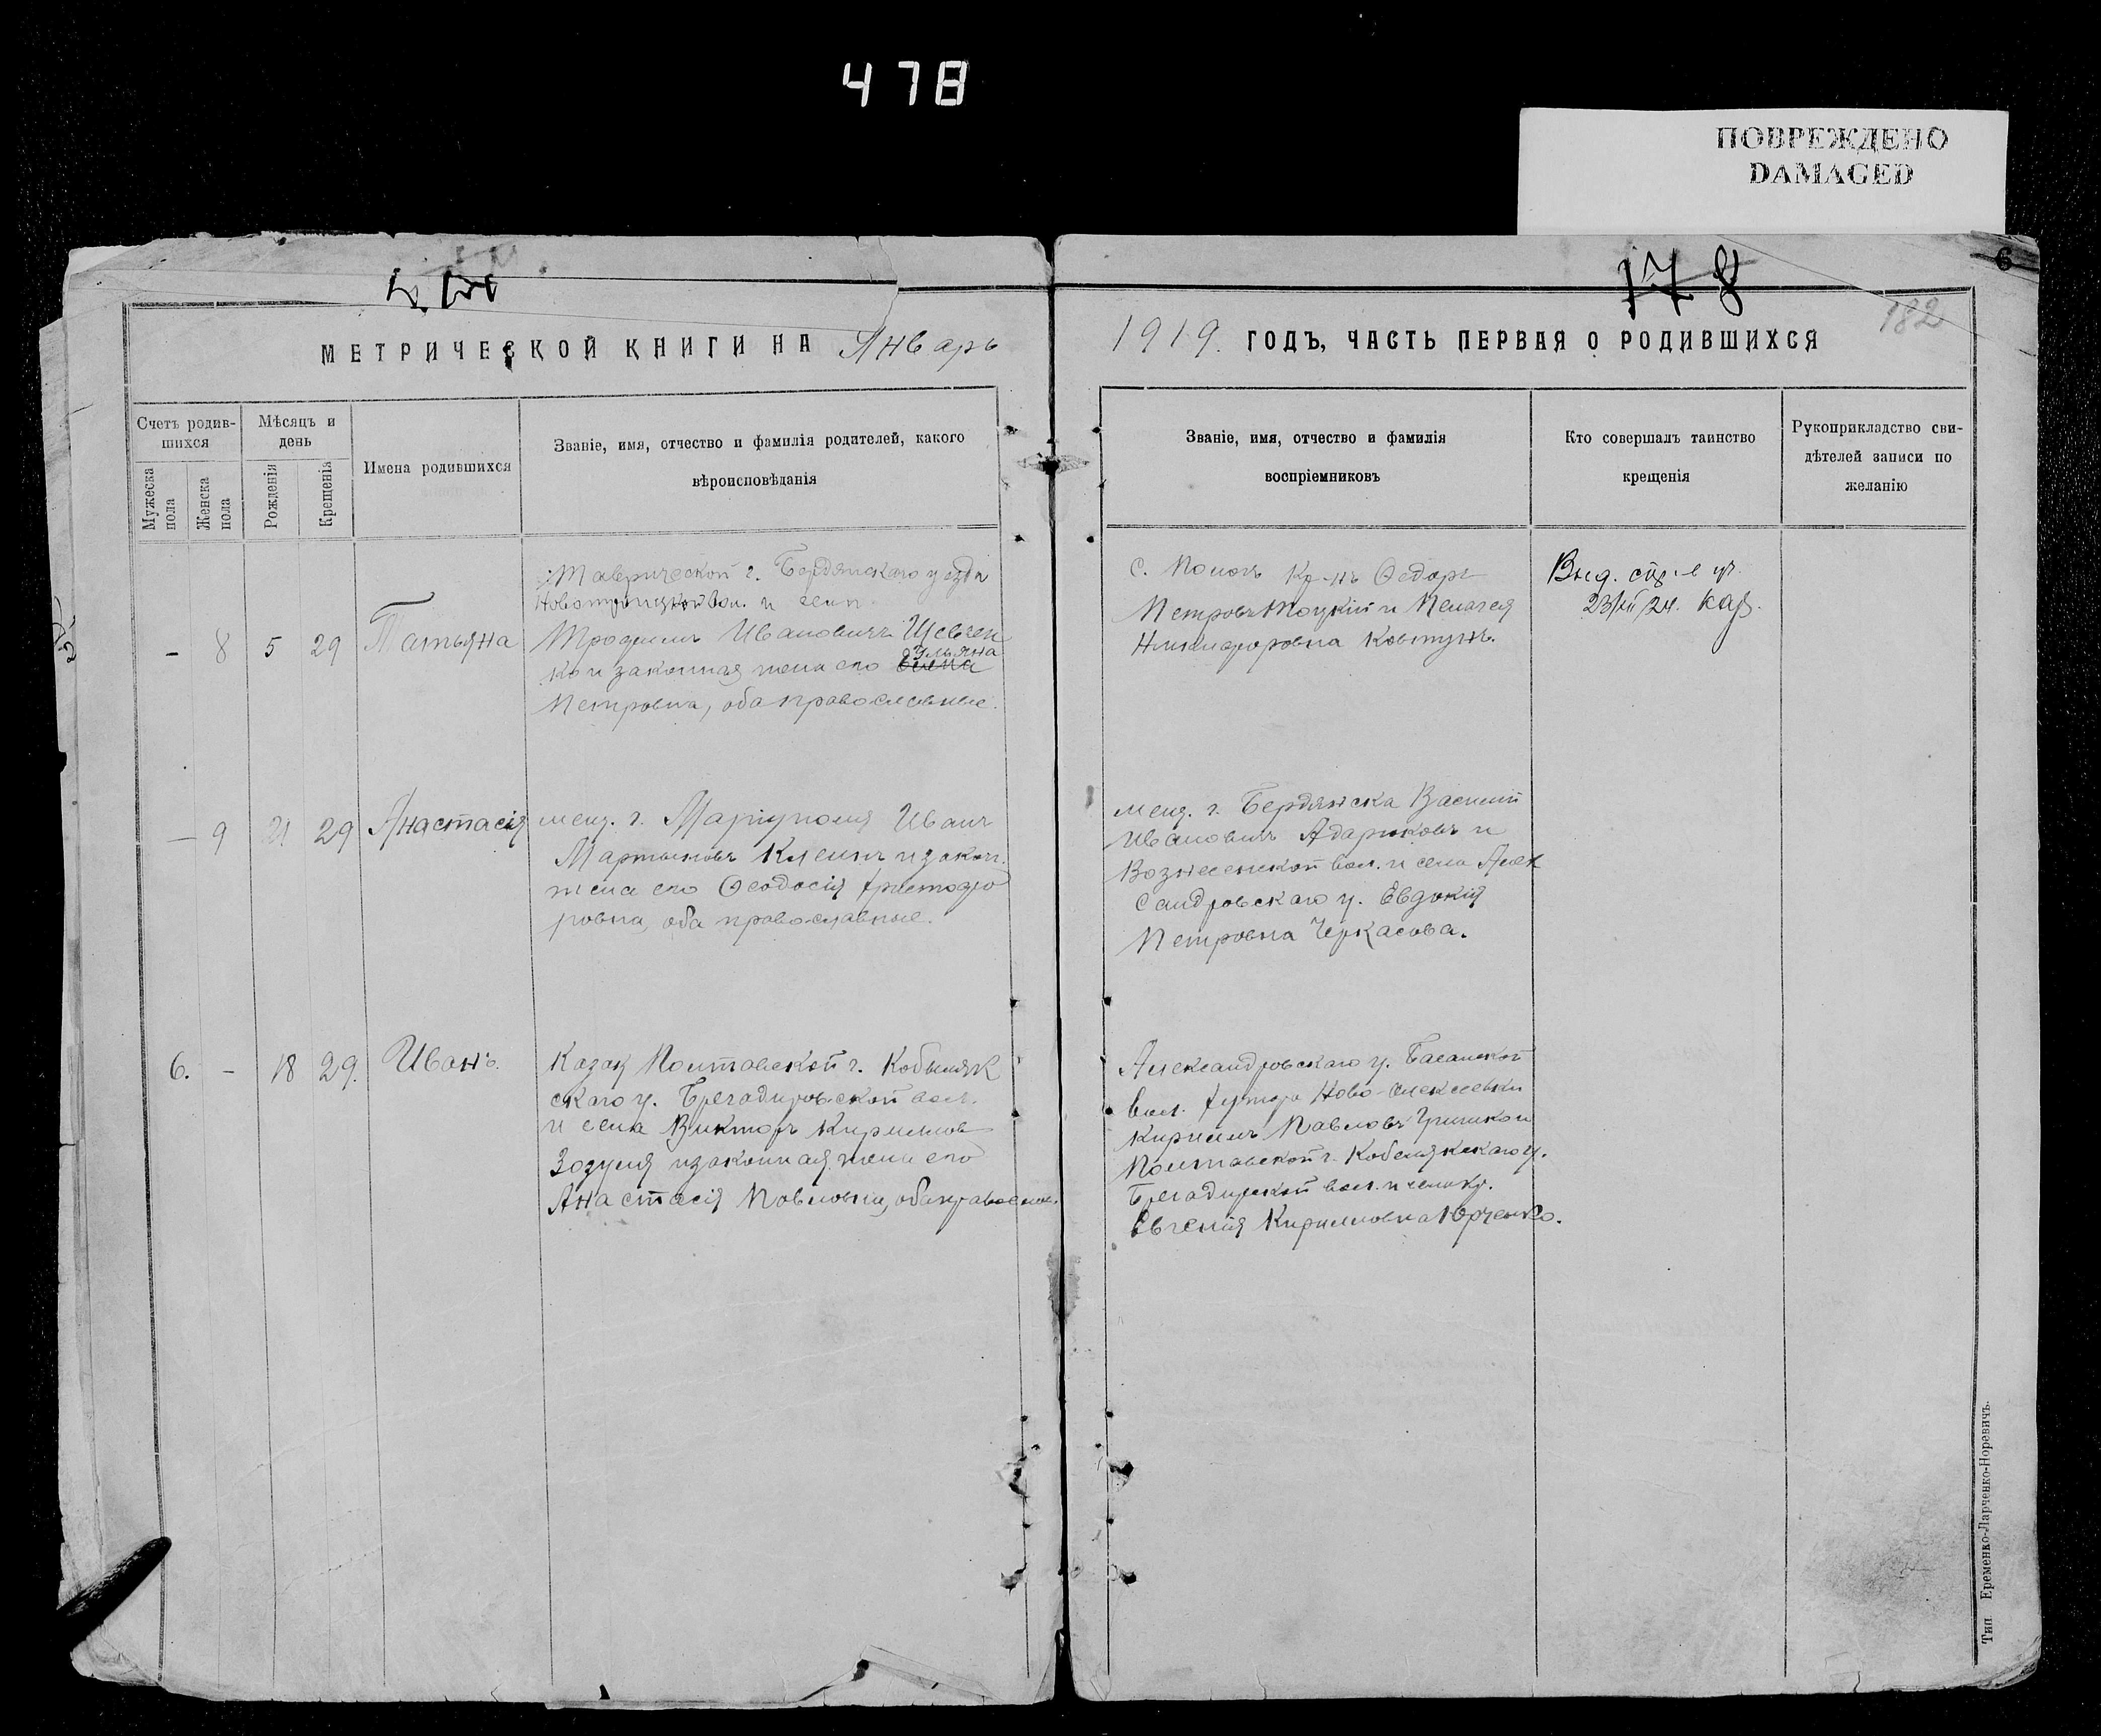 478
ПОВРЕЖДЕНО
DAMAGED
178
6
182
МЕТРИЧЕСКОЙ КНИГИ НА Январь
1919. ГОДЪ, ЧАСТЬ ПЕРВАЯ О РОДИВШИХСЯ
Счетъ родив-
шихся
Мужеска
пола
Женска
пола
Мѣсяцъ и
день
Рожденія
Крещенія
Имена родившихся
Званіе, имя, отчество и фамилія родителей, какого
вѣроисповѣданія
Званіе, имя, отчество и фамилія
воспріемниковъ
Кто совершалъ таинство
крещенія
Рукоприкладство сви-
дѣтелей записи по
желанію
– 8 5 29 Татьяна
Таврической г. Бердянскаго уезда
Новотроицкой вол. и села
Трофимъ Ивановичъ Шевчен
Ульяна
ко и законная жена его Елена
Петровна, оба православные.
с. Пологъ Кр-нъ Ѳедоръ
Петровъ Тоцкій и Пелагея
Никифоровна Ковтунъ.
Выд.
23/XII/24.
– 9 21 29 Анастасія
мещ. г. Маріуполя Иванъ
Мартыновъ Клеинъ и закон.
жена его Ѳеодосія Христофо
ровна, оба православные.
мещ. г. Бердянска Василий
Ивановичъ Адариковъ и
Вознесенской вол. и села Алек
сандровскаго у. Евдокія
Петровна Черкасова.
6. – 18 29. Иванъ.
Казак Полтавской г. Кобыляк
скаго у. Брегадировской вол.
и села Викторъ Кирилловъ
Зозуля и законная жена его
Анастасія Повловна, оба православ.
Александровскаго у. Басанской
вол. хутора Ново-Алексеевки
Кирилъ Павловъ Гришко и
Полтавской г. Кобелякскаго у.
Брегадирской вол. и села кр.
Евгенія Кирилловна Юрченко.
Тип Еременко-Ларченко-Норевичъ.